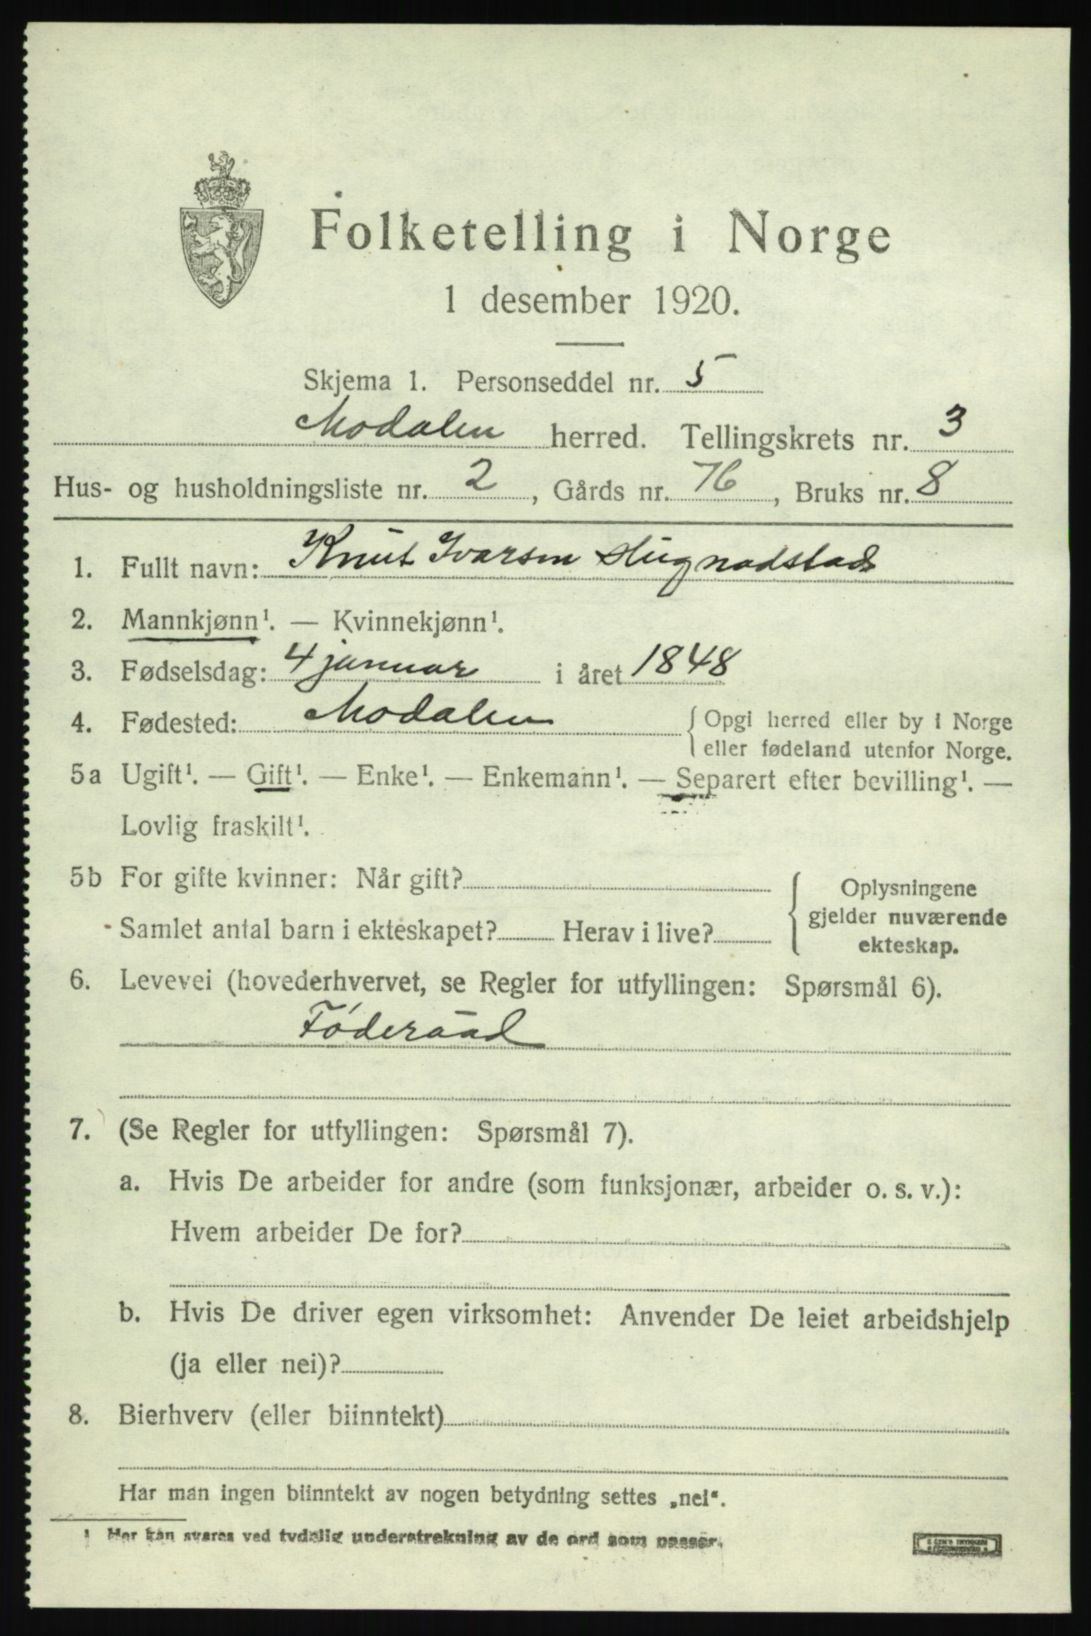 Folketelling i Norge
1 desember 1920.
Skjema 1. Personseddel nr. 5
Modalen herred. Tellingskrets nr. 3
Hus- og husholdningsliste nr. 2, Gårds nr. 76, Bruks nr. 8
1. Fullt navn: Knut Ivarsen
2. Mannkjønn¹. — Kvinnekjønn¹.
3. Fødselsdag: 4 januar i året 1848
4. Fødested: Modalen {Opgi herred eller by i Norge
eller fødeland utenfor Norge.
5a Ugift¹. — Gift¹. — Enke¹. — Enkemann¹. — Separert efter bevilling¹. —
Lovlig fraskilt¹.
5b For gifte kvinner: Når gift?
Samlet antal barn i ekteskapet? Herav i live?
Oplysningene
gjelder nuværende
ekteskap.
6. Levevei (hovederhvervet, se Regler for utfyllingen: Spørsmål 6).
Føderaad
7. (Se Regler for utfyllingen: Spørsmål 7).
a. Hvis De arbeider for andre (som funksjonær, arbeider o. s. v.):
Hvem arbeider De for?
b. Hvis De driver egen virksomhet: Anvender De leiet arbeidshjelp
(ja eller nei)?
8. Bierhverv (eller biinntekt)
Har man ingen biinntekt av nogen betydning settes „nei“.
¹ Her kan svares ved tydelig understrekning av de ord som passer.